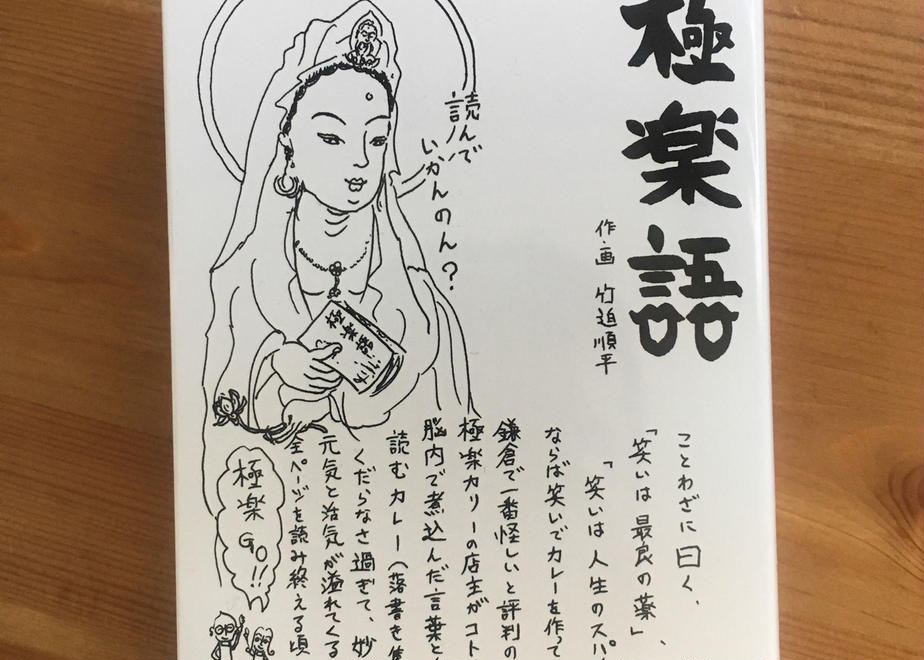 極楽語
作・画 竹迫順平
読んで
いかんのん?
極楽語
ことわざに曰く、
「笑いは最良の薬」、
「笑いは人生のスパ
ならば笑いでカレーを作って
鎌倉で一番怪しいと評判の
極楽カリーの店主がコト
脳内で煮込んだ言葉と
読むカレー(落書き
くだらなさ過ぎて、妙
元気と活気が溢れてくる
全ページを読み終える頃
極楽
GO!!